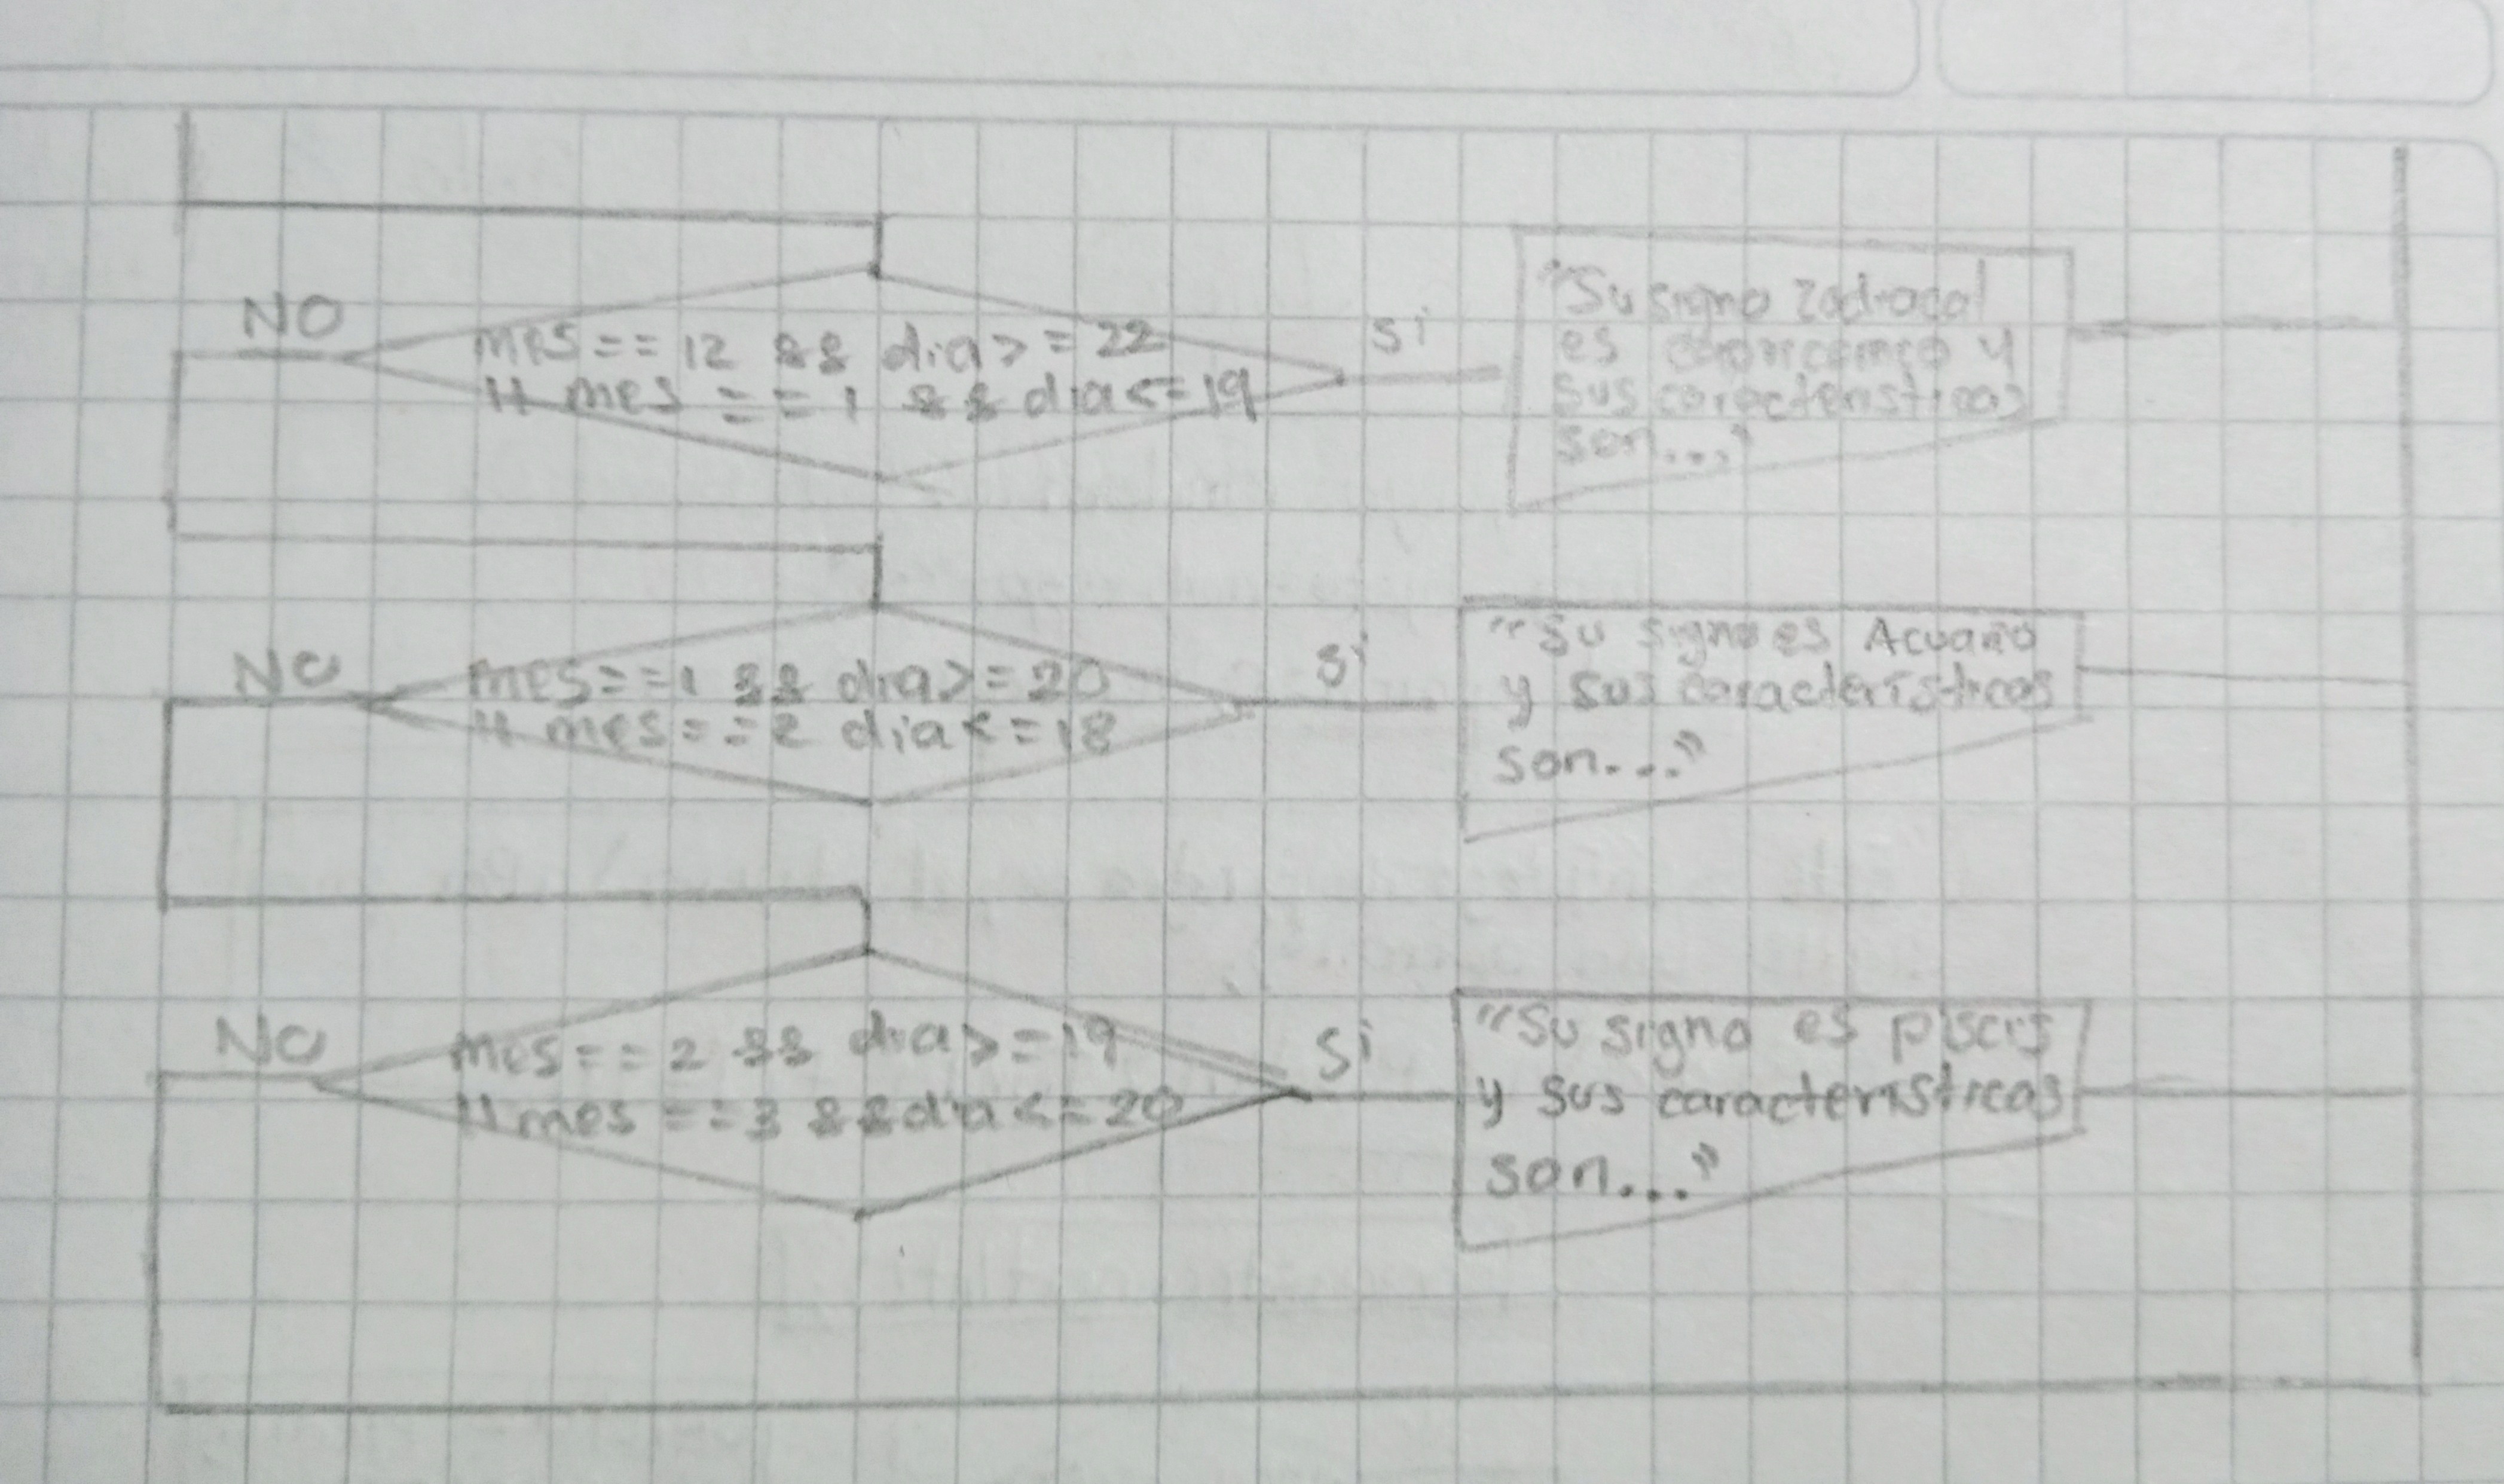 NO
mes == 12 && dia >= 22
|| mes == 1 && dia <= 19
si
"Su signo Zodiacal
es capricornio y
sus caracteristicas
son..."
NO
mes == 1 && dia >= 20
|| mes == 2 dia <= 18
si
"Su signo es Acuario
y sus caracteristicas
son..."
NO
mes == 2 && dia >= 19
|| mes == 3 && dia <= 20
Si
"Su signo es piscis
y sus caracteristicas
son..."